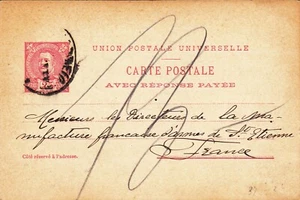 UNION POSTALE UNIVERSELLE
CARTE POSTALE
AVEC RÉPONSE PAYÉE
Messieurs les Directeurs de la Ma-
nufacture française d'armes de St. Etienne
France
Côté réservé à l'adresse.